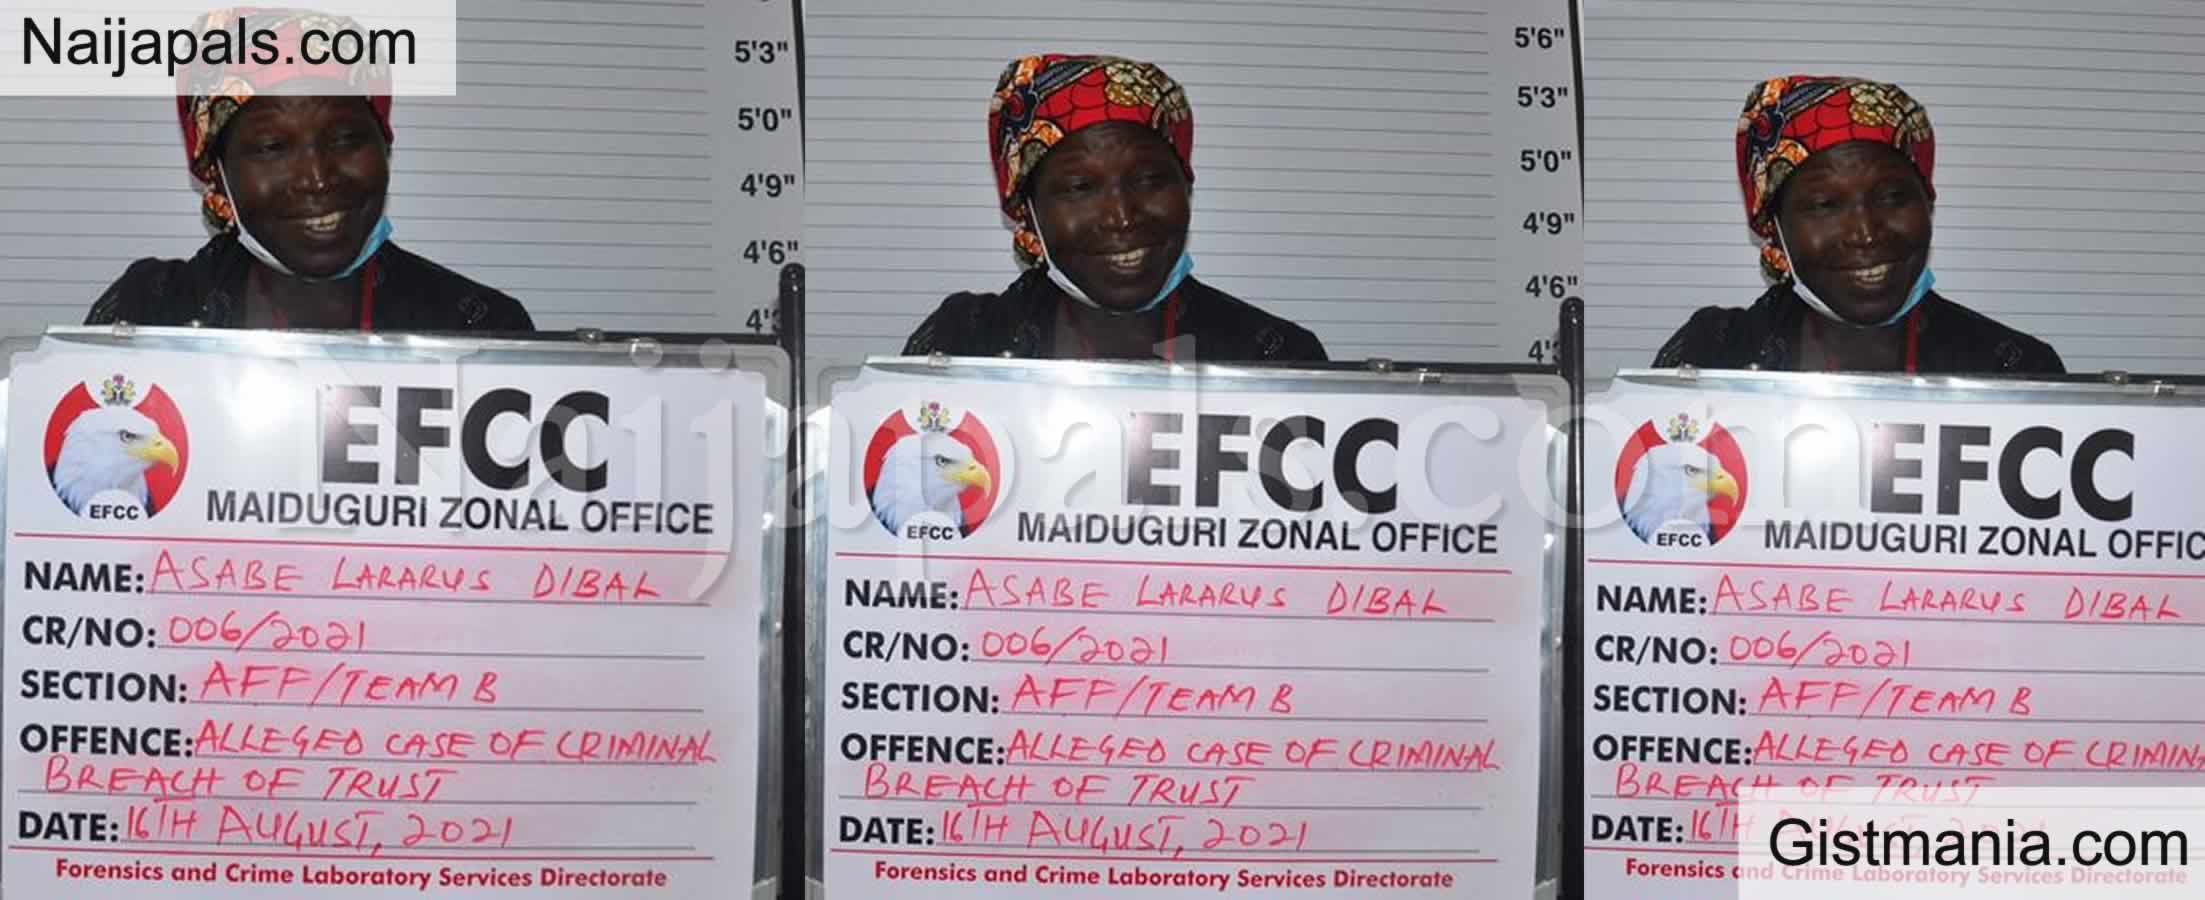 Naijapals.com
5'3"
5'0"
4'9"
4'6"
EFCC
EFCC
MAIDUGURI ZONAL OFFICE
NAME: ASABE LARARUS DIBAL
CR/NO: 006/2021
SECTION: AFF/TEAM B
OFFENCE: ALLEGED CASE OF CRIMINAL
BREACH OF TRUST
DATE: 16TH AUGUST, 2021
Forensics and Crime Laboratory Services Directorate
5'6"
5'3"
5'0"
4'9"
4'6"
EFCC
EFCC
MAIDUGURI ZONAL OFFICE
NAME: ASABE LARARUS DIBAL
CR/NO: 006/2021
SECTION: AFF/TEAM B
OFFENCE: ALLEGED CASE OF CRIMINAL
BREACH OF TRUST
DATE: 16TH AUGUST, 2021
Forensics and Crime Laboratory Services Directorate
EFCC
EFCC
MAIDUGURI ZONAL OFFIC
NAME: ASABE LARARUS DIBAL
CR/NO: 006/2021
SECTION: AFF/TEAM B
OFFENCE: ALLEGED CASE OF CRIMIN
BREACH OF TRUST
DATE: 16TH
Forensics and Crime Laboratory Services Directorate
Naijapals.com
Gistmania.com